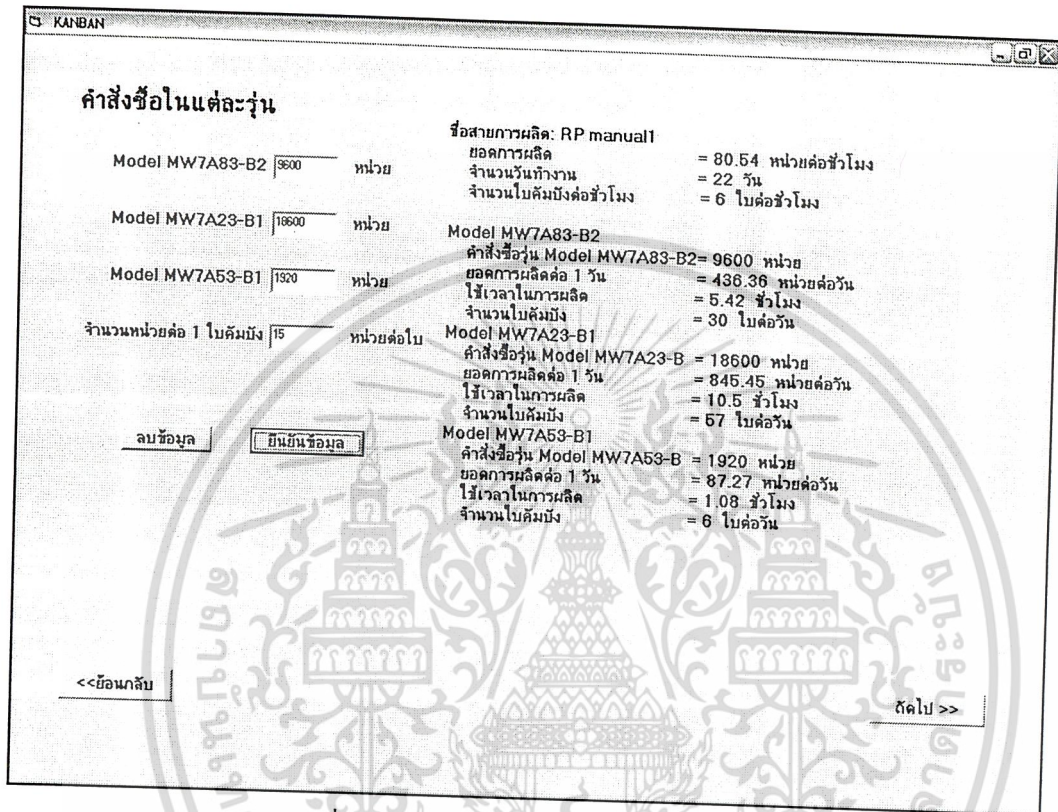 KANBAN
คำสั่งซื้อในแต่ละรุ่น
Model MW7A83-B2 9600 หน่วย
Model MW7A23-B1 18600 หน่วย
Model MW7A53-B1 1920 หน่วย
จำนวนหน่วยต่อ 1 ใบคัมบัง 15 หน่วยต่อใบ
ลบข้อมูล ยืนยันข้อมูล
<<ย้อนกลับ
ชื่อสายการผลิต: RP manual1
ยอดการผลิต = 80.54 หน่วยต่อชั่วโมง
จำนวนวันทำงาน = 22 วัน
จำนวนใบคัมบังต่อชั่วโมง = 6 ใบต่อชั่วโมง
Model MW7A83-B2
คำสั่งซื้อรุ่น Model MW7A83-B2= 9600 หน่วย
ยอดการผลิตต่อ 1 วัน = 436.36 หน่วยต่อวัน
ใช้เวลาในการผลิต = 5.42 ชั่วโมง
จำนวนใบคัมบัง = 30 ใบต่อวัน
Model MW7A23-B1
คำสั่งซื้อรุ่น Model MW7A23-B = 18600 หน่วย
ยอดการผลิตต่อ 1 วัน = 845.45 หน่วยต่อวัน
ใช้เวลาในการผลิต = 10.5 ชั่วโมง
จำนวนใบคัมบัง = 57 ใบต่อวัน
Model MW7A53-B1
คำสั่งซื้อรุ่น Model MW7A53-B = 1920 หน่วย
ยอดการผลิตต่อ 1 วัน = 87.27 หน่วยต่อวัน
ใช้เวลาในการผลิต = 1.08 ชั่วโมง
จำนวนใบคัมบัง = 6 ใบต่อวัน
ถัดไป >>